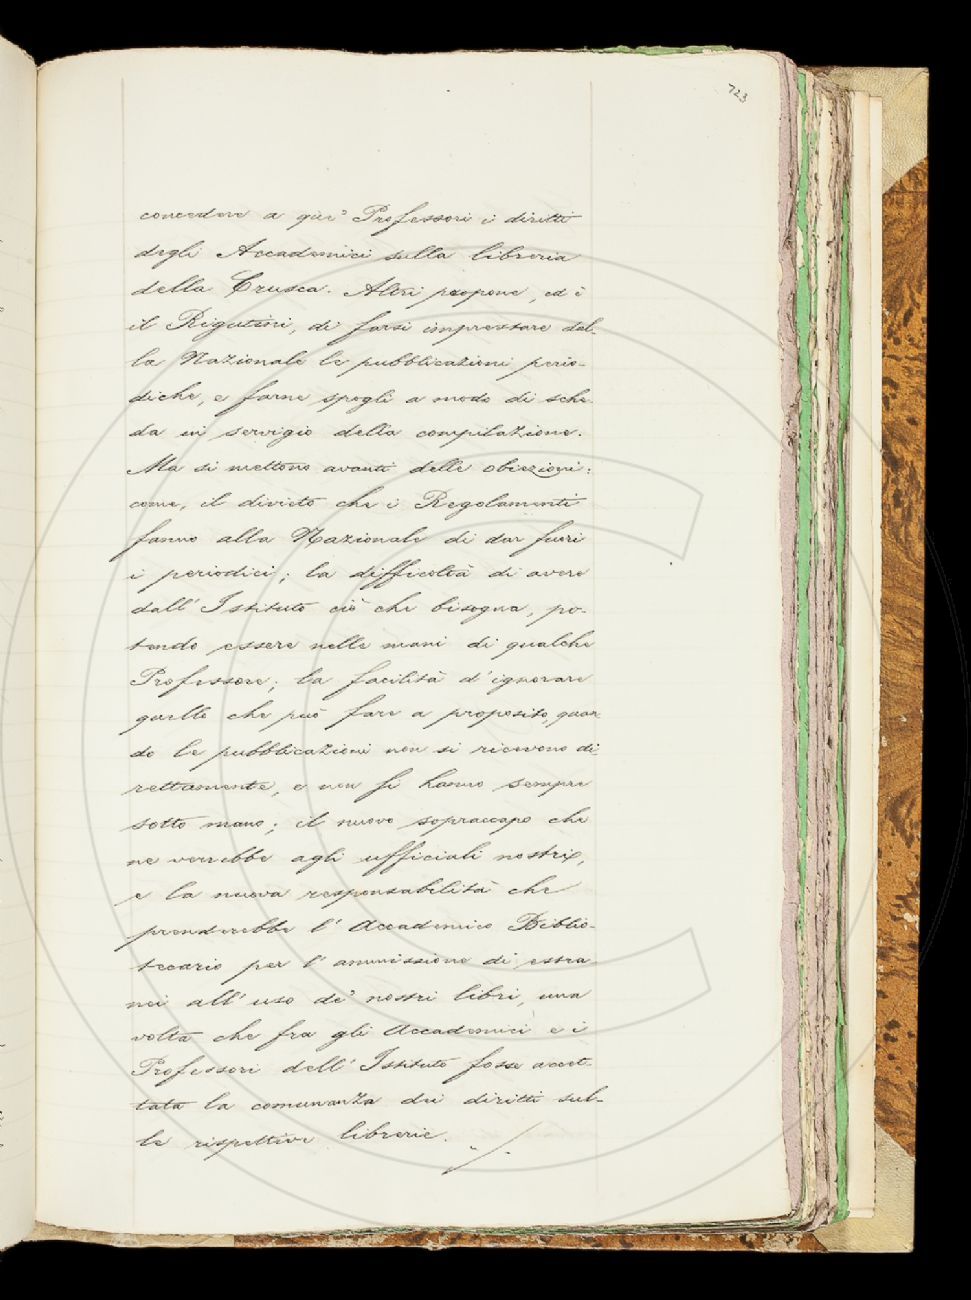 723
concedere a que' Professori i diritti
degli Accademici sulla libreria
della Crusca. Altri propone, ed è
il Rigutini, di farsi imprestare dal-
la Nazionale le pubblicazioni perio-
diche, e farne spogli a modo di sche-
da in servigio della compilazione.
Ma si mettono avanti delle obiezioni:
come, il divieto che i Regolamenti
fanno alla Nazionale di dar fuori
i periodici; la difficoltà di avere
dall'Istituto ciò che bisogna, po-
tendo essere nelle mani di qualche
Professore; la facilità d'ignorare
quello che può fare a proposito, quan-
do le pubblicazioni non si ricevono di-
rettamente, e non si hanno sempre
sotto mano; il nuovo sopraccapo che
ne verrebbe agli ufficiali nostri,
e la nuova responsabilità che
prenderebbe l'Accademico Biblio-
tecario per l'ammissione di estra-
nei all'uso de' nostri libri, una
volta che fra gli Accademici e i
Professori dell'Istituto fosse accet-
tata la comunanza dei diritti sul-
le rispettive librerie.